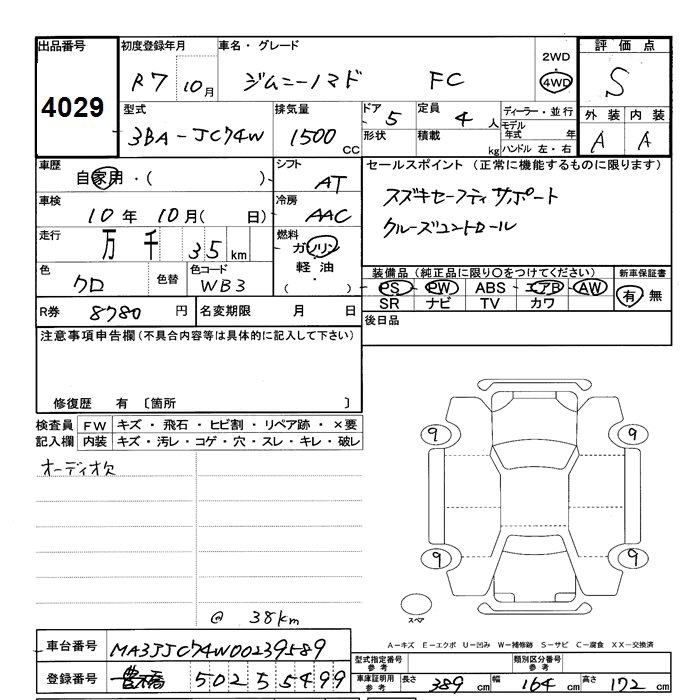 出品番号
4029
初度登録年月
R7 10月
車名・グレード
ジムニーノマド FC
2WD
4WD
評価点
S
外装 内装
A A
型式
3BA-JC74W
排気量
1500 CC
ドア 5
形状
定員 4 人
積載 kg
ディーラー・並行
モデル年式 年
ハンドル 左・右
車歴
自家用・( )
シフト
AT
車検
10年 10月( 日)
冷房
AAC
走行
万 千 35 km
燃料
ガソリン
軽油
( )
色
クロ
色替
色コード
WB3
R券 8780 円
名変期限 月 日
セールスポイント(正常に機能するものに限ります)
スズキセーフティサポート
クルーズコントロール
装備品(純正品に限り〇をつけてください)
PS PW ABS エアB AW
SR ナビ TV カワ
新車保証書
有 無
後日品
注意事項申告欄(不具合内容等は具体的に記入して下さい)
修復歴 有 〔箇所 〕
検査員記入欄
FW キズ・飛石・ヒビ割・リペア跡・×要
内装 キズ・汚レ・コゲ・穴・スレ・キレ・破レ
オーディオ欠
9 9
9 9
スペア
@ 38km
A-キズ E-エクボ U-凹み W-補修跡 S-サビ C-腐食 XX-交換済
車台番号 MA3JJC74W00239589
登録番号 豊橋 502 5 5499
型式指定番号参考
類別区分番号参考
車庫証明用参考 長さ 389 cm 幅 164 cm 高さ 172 cm